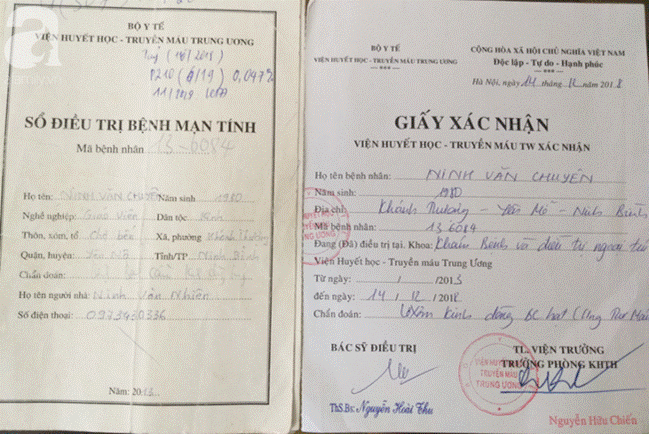 BỘ Y TẾ
VIỆN HUYẾT HỌC - TRUYỀN MÁU TRUNG ƯƠNG
Tuỷ (18/2018)
P210 (6/19) 0,047%
11/2019
SỔ ĐIỀU TRỊ BỆNH MẠN TÍNH
Mã bệnh nhân 13-6084
Họ tên: NINH VĂN CHUYÊN Năm sinh 1980
Nghề nghiệp: Giáo Viên Dân tộc Kinh
Thôn, xóm, tổ Chợ bến Xã, phường Khánh Thượng
Quận, huyện: Yên Mô Tỉnh/TP Ninh Bình
Chẩn đoán:
Họ tên người nhà: Ninh Văn Nhiên
Số điện thoại: 0973430336
Năm: 2013
BỘ Y TẾ
VIỆN HUYẾT HỌC - TRUYỀN MÁU TRUNG ƯƠNG
CỘNG HÒA XÃ HỘI CHỦ NGHĨA VIỆT NAM
Độc lập - Tự do - Hạnh phúc
Hà Nội, ngày 14 tháng 12 năm 2018
GIẤY XÁC NHẬN
VIỆN HUYẾT HỌC - TRUYỀN MÁU TW XÁC NHẬN
Họ tên bệnh nhân: NINH VĂN CHUYÊN
Năm sinh: 1980
Địa chỉ: Khánh Thượng - Yên Mô - Ninh Bình
Mã bệnh nhân: 136084
Đang (Đã) điều trị tại. Khoa: Khám Bệnh và điều trị ngoại trú
Viện Huyết học - Truyền máu Trung Ương
Từ ngày: / /2013
đến ngày: 14 / 12 /2018
Chẩn đoán: LXM kinh dòng BC hạt (Ung thư Máu
BÁC SỸ ĐIỀU TRỊ
TL. VIỆN TRƯỞNG
TRƯỞNG PHÒNG KHTH
VIỆN HUYẾT HỌC
TRUYỀN MÁU
TRUNG ƯƠNG
ThS.Bs: Nguyễn Hoài Thu
Nguyễn Hữu Chiến